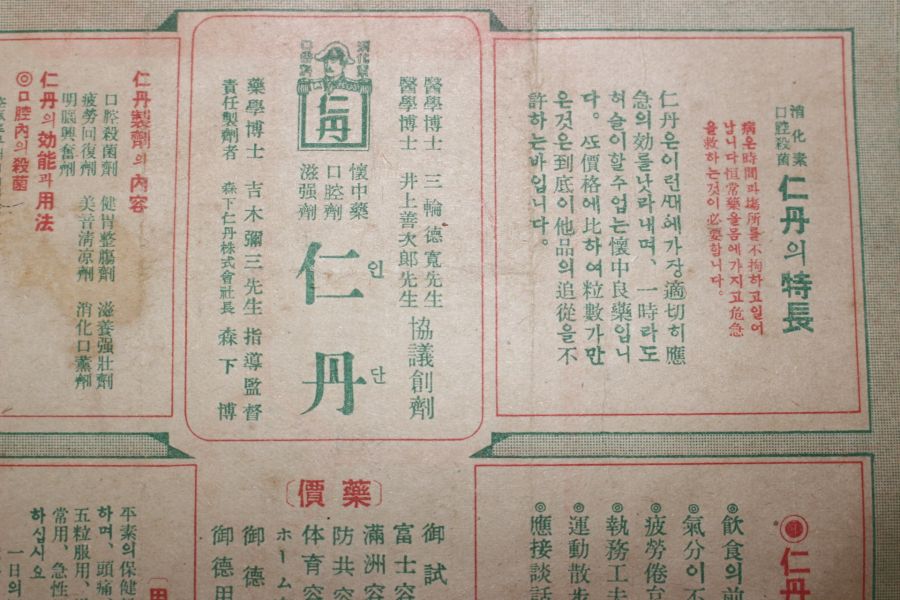 消化素
口腔殺菌
仁丹의特長
病은時間과場所를不拘하고일어
납니다恒常藥을몸에가지고危急
을救하는것이必要합니다。
仁丹은이런때에가장適切히應
急의効를낫라내며、一時라도
허술이할수업는懷中良藥입니
다。또價格에比하여粒數가만
은것은到底이他品의追從을不
許하는바입니다。
仁丹
醫學博士 三輪德寬先生
醫學博士 井上善次郎先生
協議創劑
懷中藥
口腔劑
滋强劑
仁丹
인단
藥學博士 吉木彌三先生 指導監督
責任製劑者 森下仁丹株式會社長 森下博
仁丹製劑의內容
口腔殺菌劑 健胃整腸劑 滋養强壯劑
疲勞回復劑 美音淸凉劑 消化口薰劑
明腦興奮劑
仁丹의効能과用法
◎口腔內의殺菌
◉仁丹
◎飮食의前
◎氣分이不
◎疲勞倦怠
◎執務工夫
◎運動散步
◎應接談話
〔藥價〕
御試
富士容
滿洲容
防共容
体育容
ホーム
御德
御德用
用
平素의保健
하며、頭痛
五粒服用、
常用、急性
하십시요
一日의